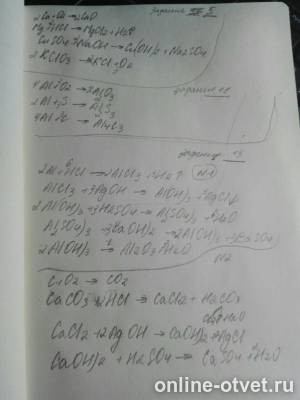 задание № 5
2Ca+O2→2CaO
Mg+2HCl→MgCl2+H2↑
CuSO4+NaOH→Cu(OH)2↓+Na2SO4
2KClO3→2KCl+3O2
задание
4Al+3O2→2Al2O3
2Al+3S→Al2S3
4Al+3C→Al4C3
задание
2Al+6HCl→2AlCl3+3H2↑ N1
AlCl3+3AgOH→Al(OH)3+3AgCl↓
2Al(OH)3+3H2SO4→Al2(SO4)3+6H2O
Al2(SO4)3+3Ca(OH)2→2Al(OH)3+3CaSO4
2Al(OH)3→Al2O3+3H2O
N2
C+O2→CO2
CaCO3+2HCl→CaCl2+H2CO3
CO2+H2O
CaCl2+2AgOH→Ca(OH)2+2AgCl
Ca(OH)2+H2SO4→CaSO4+2H2O
online-otvet.ru